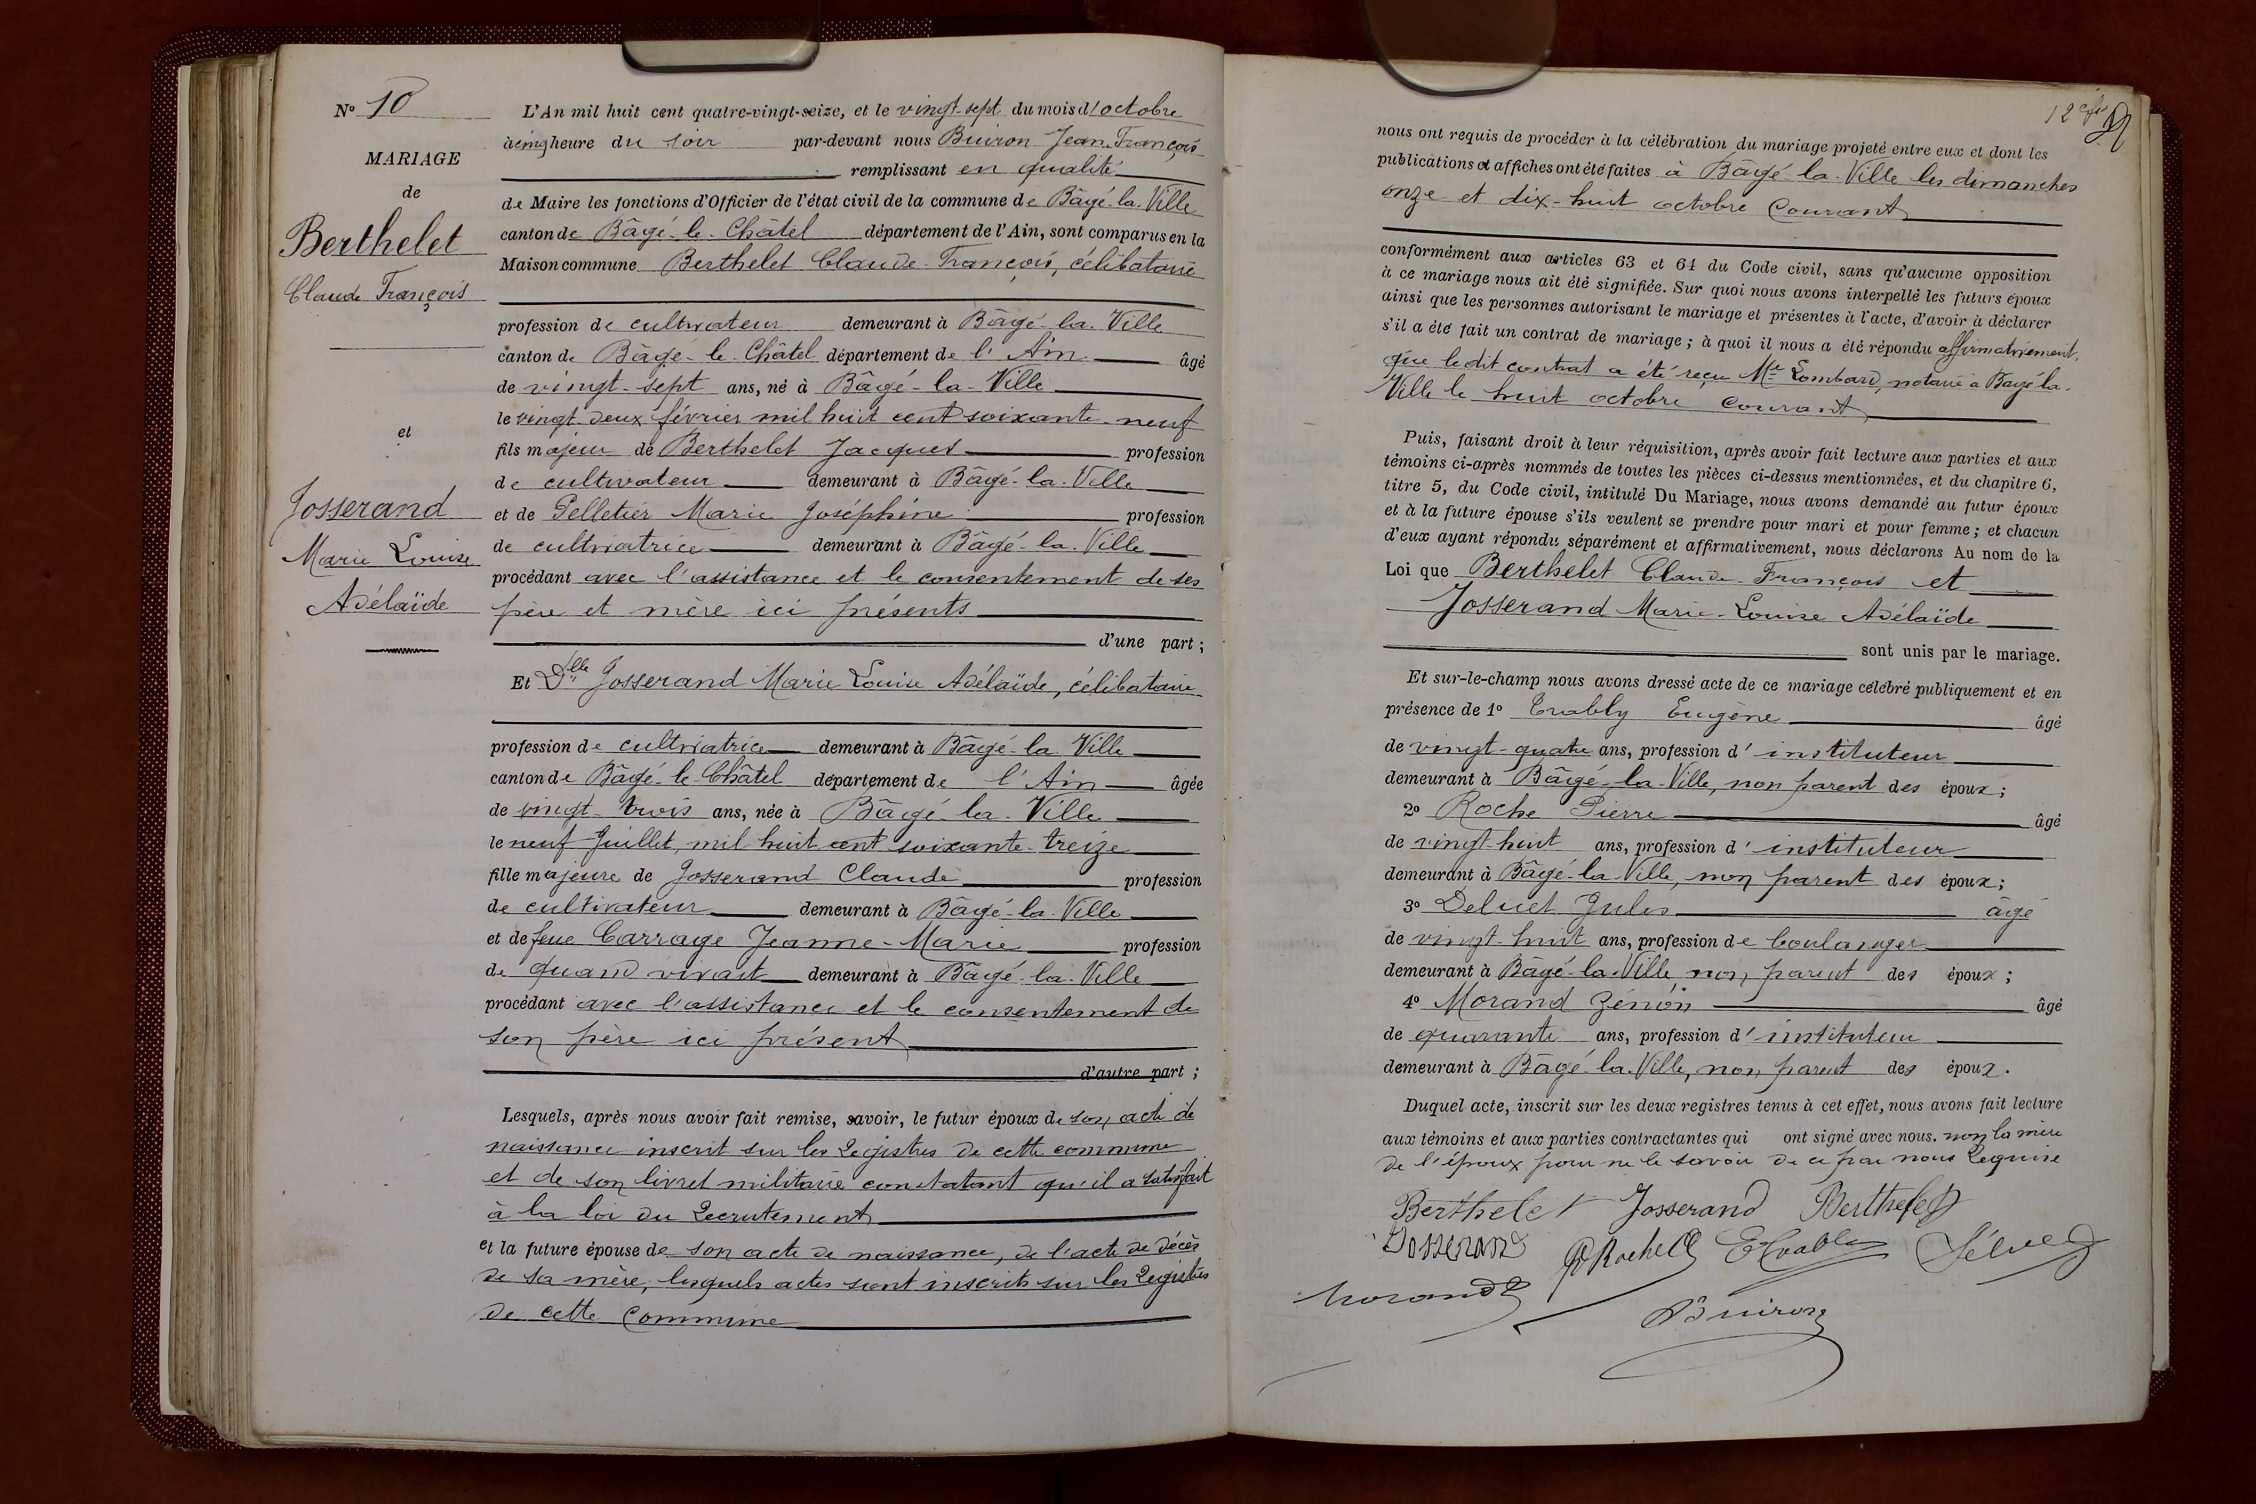 Nº 10
MARIAGE
de
Berthelet
Claude François
et
Josserand
Marie Louise
Adélaïde
L'An mil huit cent quatre-vingt-seize, et le vingt-sept du mois d'octobre
à cinq heure du soir par-devant nous Buiron Jean François
remplissant en qualité
de Maire les fonctions d'Officier de l'état civil de la commune de Bâgé-la-Ville
canton de Bâgé-le-Châtel département de l'Ain, sont comparus en la
Maison commune Berthelet Claude-François, célibataire
profession de cultivateur demeurant à Bâgé-la-Ville
canton de Bâgé-le-Châtel département de l'Ain âgé
de vingt-sept ans, né à Bâgé-la-Ville
le vingt-deux février mil huit cent soixante-neuf
fils majeur de Berthelet Jacques profession
de cultivateur demeurant à Bâgé-la-Ville
et de Pelletier Marie Joséphine profession
de cultivatrice demeurant à Bâgé-la-Ville
procédant avec l'assistance et le consentement de ses
père et mère ici présents
d'une part ;
Et Dlle Josserand Marie Louise Adélaïde, célibataire
profession de cultivatrice demeurant à Bâgé-la-Ville
canton de Bâgé-le-Châtel département de l'Ain âgée
de vingt-trois ans, née à Bâgé-la-Ville
le neuf Juillet, mil huit cent soixante-treize
fille majeure de Josserand Claude profession
de cultivateur demeurant à Bâgé-la-Ville
et de feue Carrage Jeanne-Marie profession
de quand vivait demeurant à Bâgé-la-Ville
procédant avec l'assistance et le consentement de
son père ici présent
d'autre part ;
Lesquels, après nous avoir fait remise, savoir, le futur époux de son acte de
naissance inscrit sur les Registres de cette commune
et de son livret militaire constatant qu'il a satisfait
à la loi du Recrutement
et la future épouse de son acte de naissance, de l'acte de décès
de sa mère, lesquels actes sont inscrits sur les Registres
de cette Commune
nous ont requis de procéder à la célébration du mariage projeté entre eux et dont les
publications et affiches ont été faites à Bâgé-la-Ville les dimanches
onze et dix-huit octobre Courant
conformément aux articles 63 et 64 du Code civil, sans qu'aucune opposition
à ce mariage nous ait été signifiée. Sur quoi nous avons interpellé les futurs époux
ainsi que les personnes autorisant le mariage et présentes à l'acte, d'avoir à déclarer
s'il a été fait un contrat de mariage ; à quoi il nous a été répondu affirmativement,
que le dit contrat a été reçu Me Lombard, notaire à Bagé-la-
Ville le huit octobre courant
Puis, faisant droit à leur réquisition, après avoir fait lecture aux parties et aux
témoins ci-après nommés de toutes les pièces ci-dessus mentionnées, et du chapitre 6,
titre 5, du Code civil, intitulé Du Mariage, nous avons demandé au futur époux
et à la future épouse s'ils veulent se prendre pour mari et pour femme ; et chacun
d'eux ayant répondu séparément et affirmativement, nous déclarons Au nom de la
Loi que Berthelet Claude-François et
Josserand Marie-Louise Adélaïde
sont unis par le mariage.
Et sur-le-champ nous avons dressé acte de ce mariage célébré publiquement et en
présence de 1º Trably Eugène âgé
de vingt-quatre ans, profession d'instituteur
demeurant à Bâgé-la-Ville, non parent des époux ;
2º Roche Pierre âgé
de vingt-huit ans, profession d'instituteur
demeurant à Bâgé-la-Ville, non parent des époux ;
3º Jules âgé
de vingt-huit ans, profession de boulanger
demeurant à Bâgé-la-Ville non parent des époux ;
4º Morand Zénon âgé
de quarante ans, profession d'instituteur
demeurant à Bâgé-la-Ville, non parent des époux.
Duquel acte, inscrit sur les deux registres tenus à cet effet, nous avons fait lecture
aux témoins et aux parties contractantes qui ont signé avec nous. non la mère
de l'époux pour ne le savoir de ce par nous Requise
Berthelet Josserand Berthelet
Josserand P Roche E Trably
Morand
Buiron